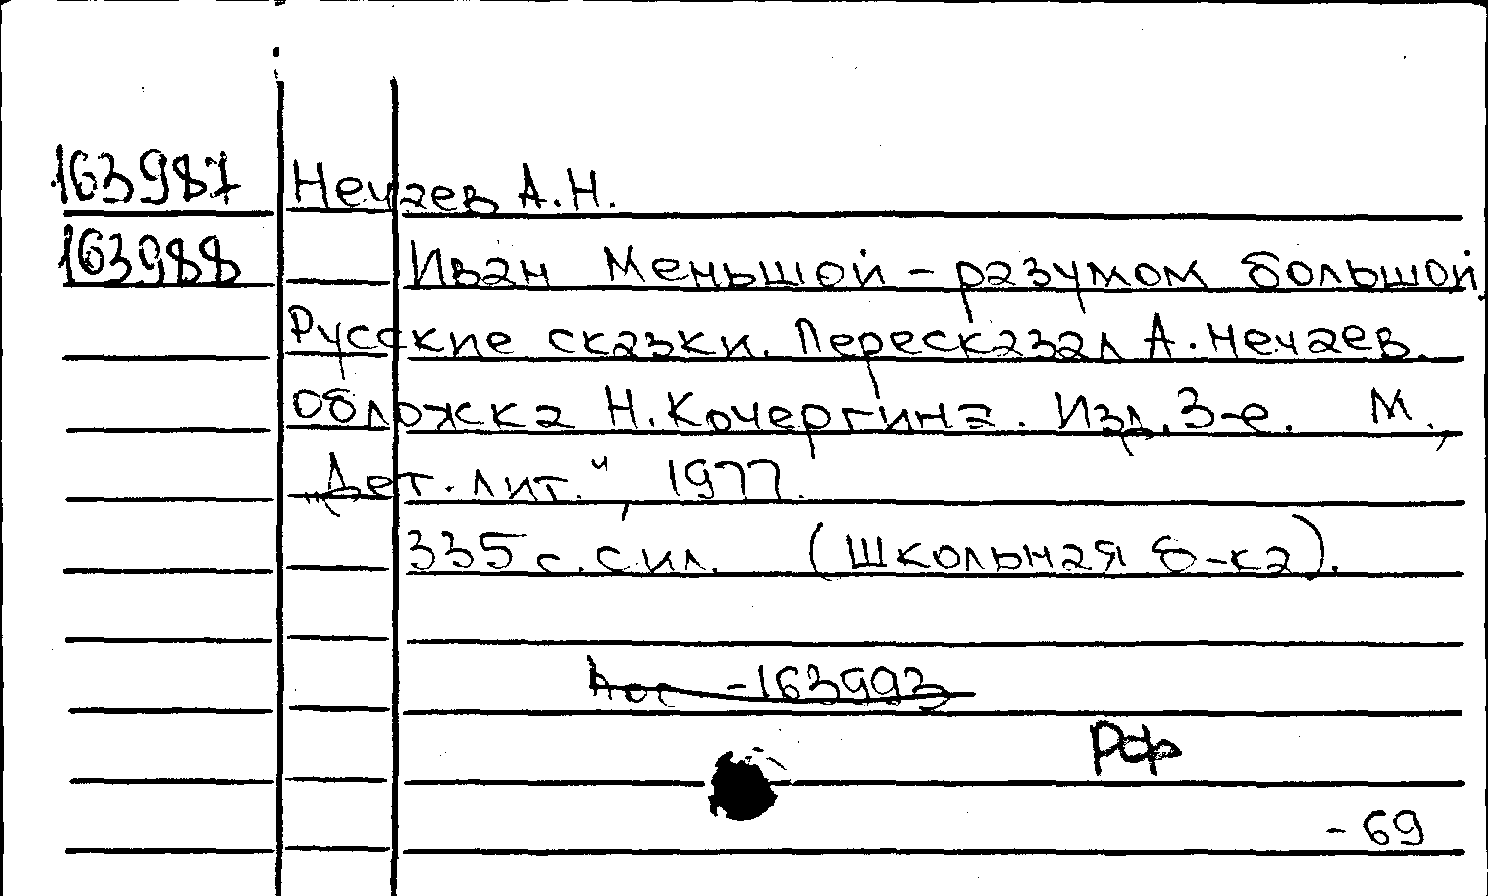 163987 Нечаев А.Н.
163988 Иван Меньшой - разумом большой.
Русские сказки. Пересказал А. Нечаев.
Обложка Н. Кочергина. Изд. 3-е. М.,
„Дет. лит.", 1977.
335 с. с ил. (Школьная б-ка).
-163993
Рф
- 69